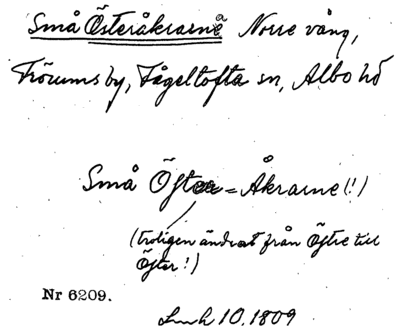 Små Österåkrarna Norre vång,
Trörums by, Fågeltofta sn, Albo hd
Små Öfter=Åkrarne (!)
(troligen ändrat från Öftre till
Öfter!)
Nr 6209.
Lmh 10. 1809